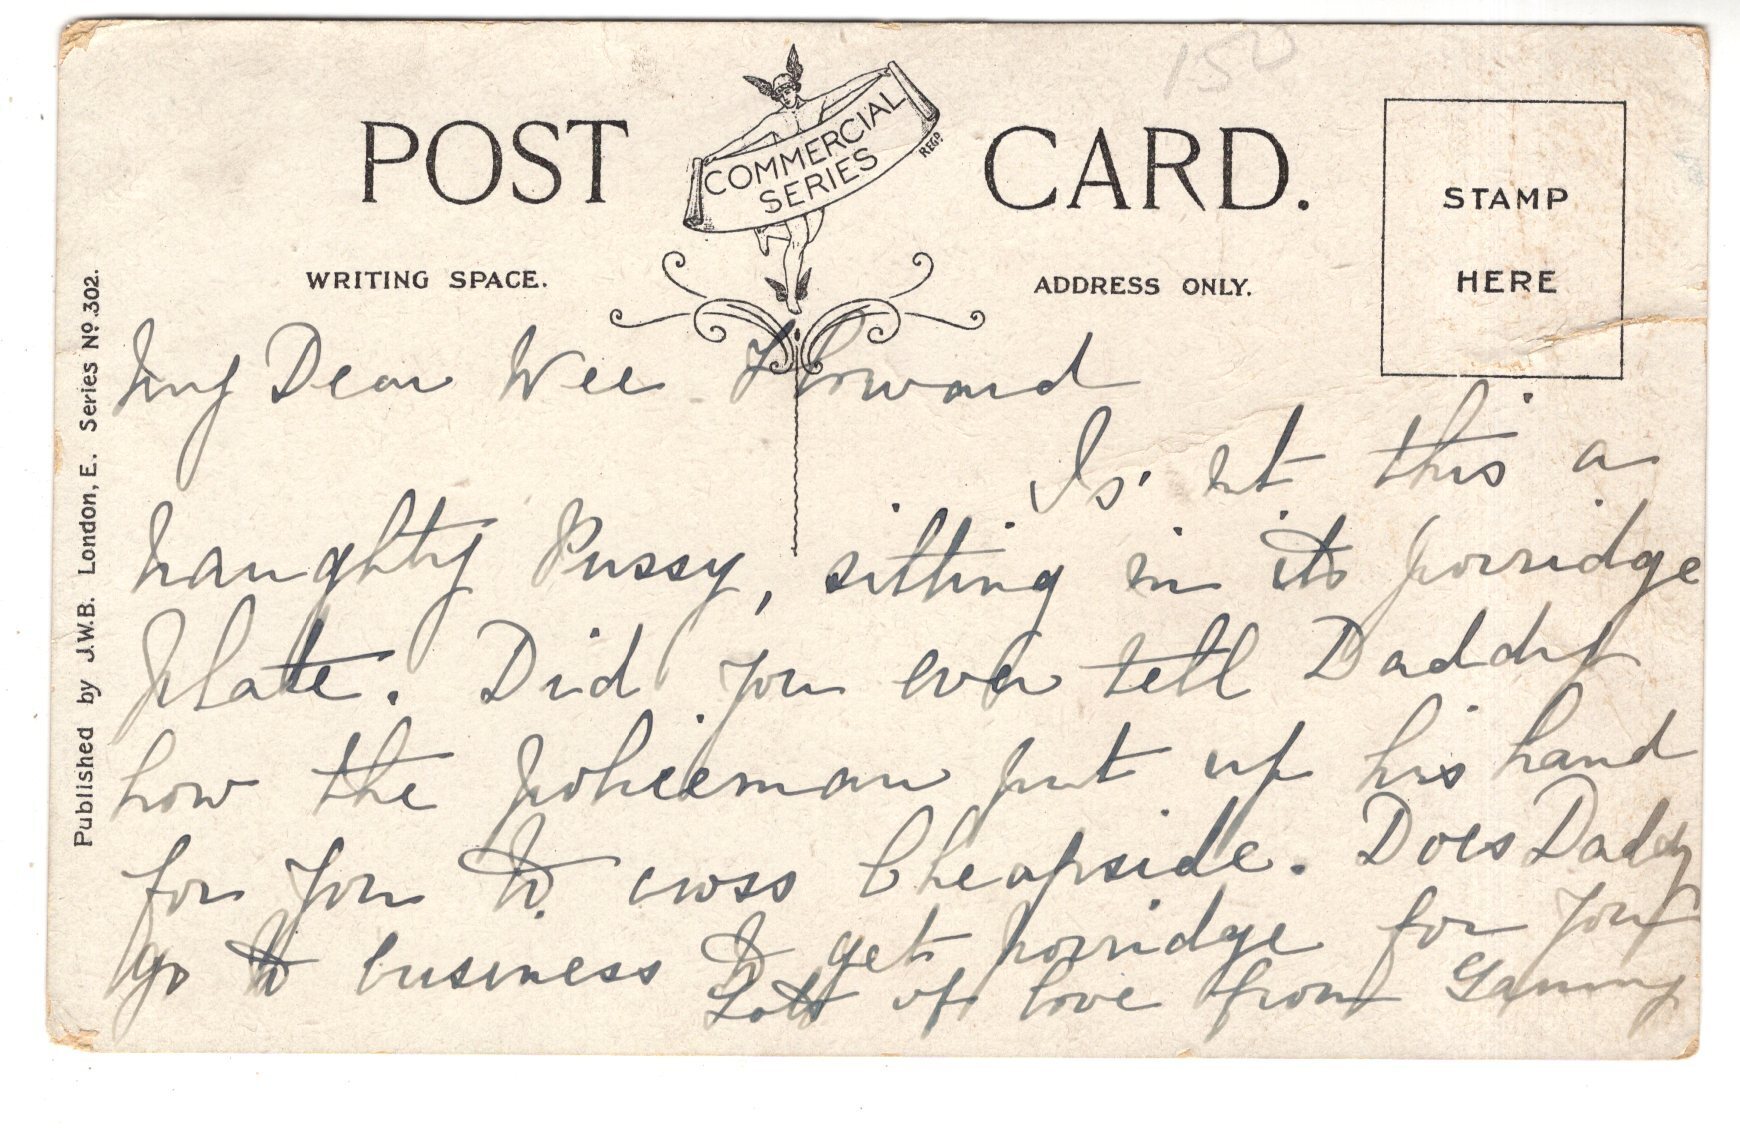 150
POST CARD.
COMMERCIAL
SERIES
REGD.
STAMP
HERE
WRITING SPACE.
ADDRESS ONLY.
Published by J.W.B. London, E. Series No. 302.
My Dear Wee Howard
Is'nt this a
naughty Pussy, sitting in its porridge
plate. Did you ever tell Daddy
how the policeman put up his hand
for you to cross Cheapside. Does Daddy
go to business to get porridge for you
Lots of love from Gammy